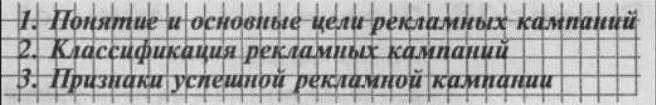 1. Понятие и основные цели рекламных кампаний
2. Классификация рекламных кампаний
3. Признаки успешной рекламной кампании